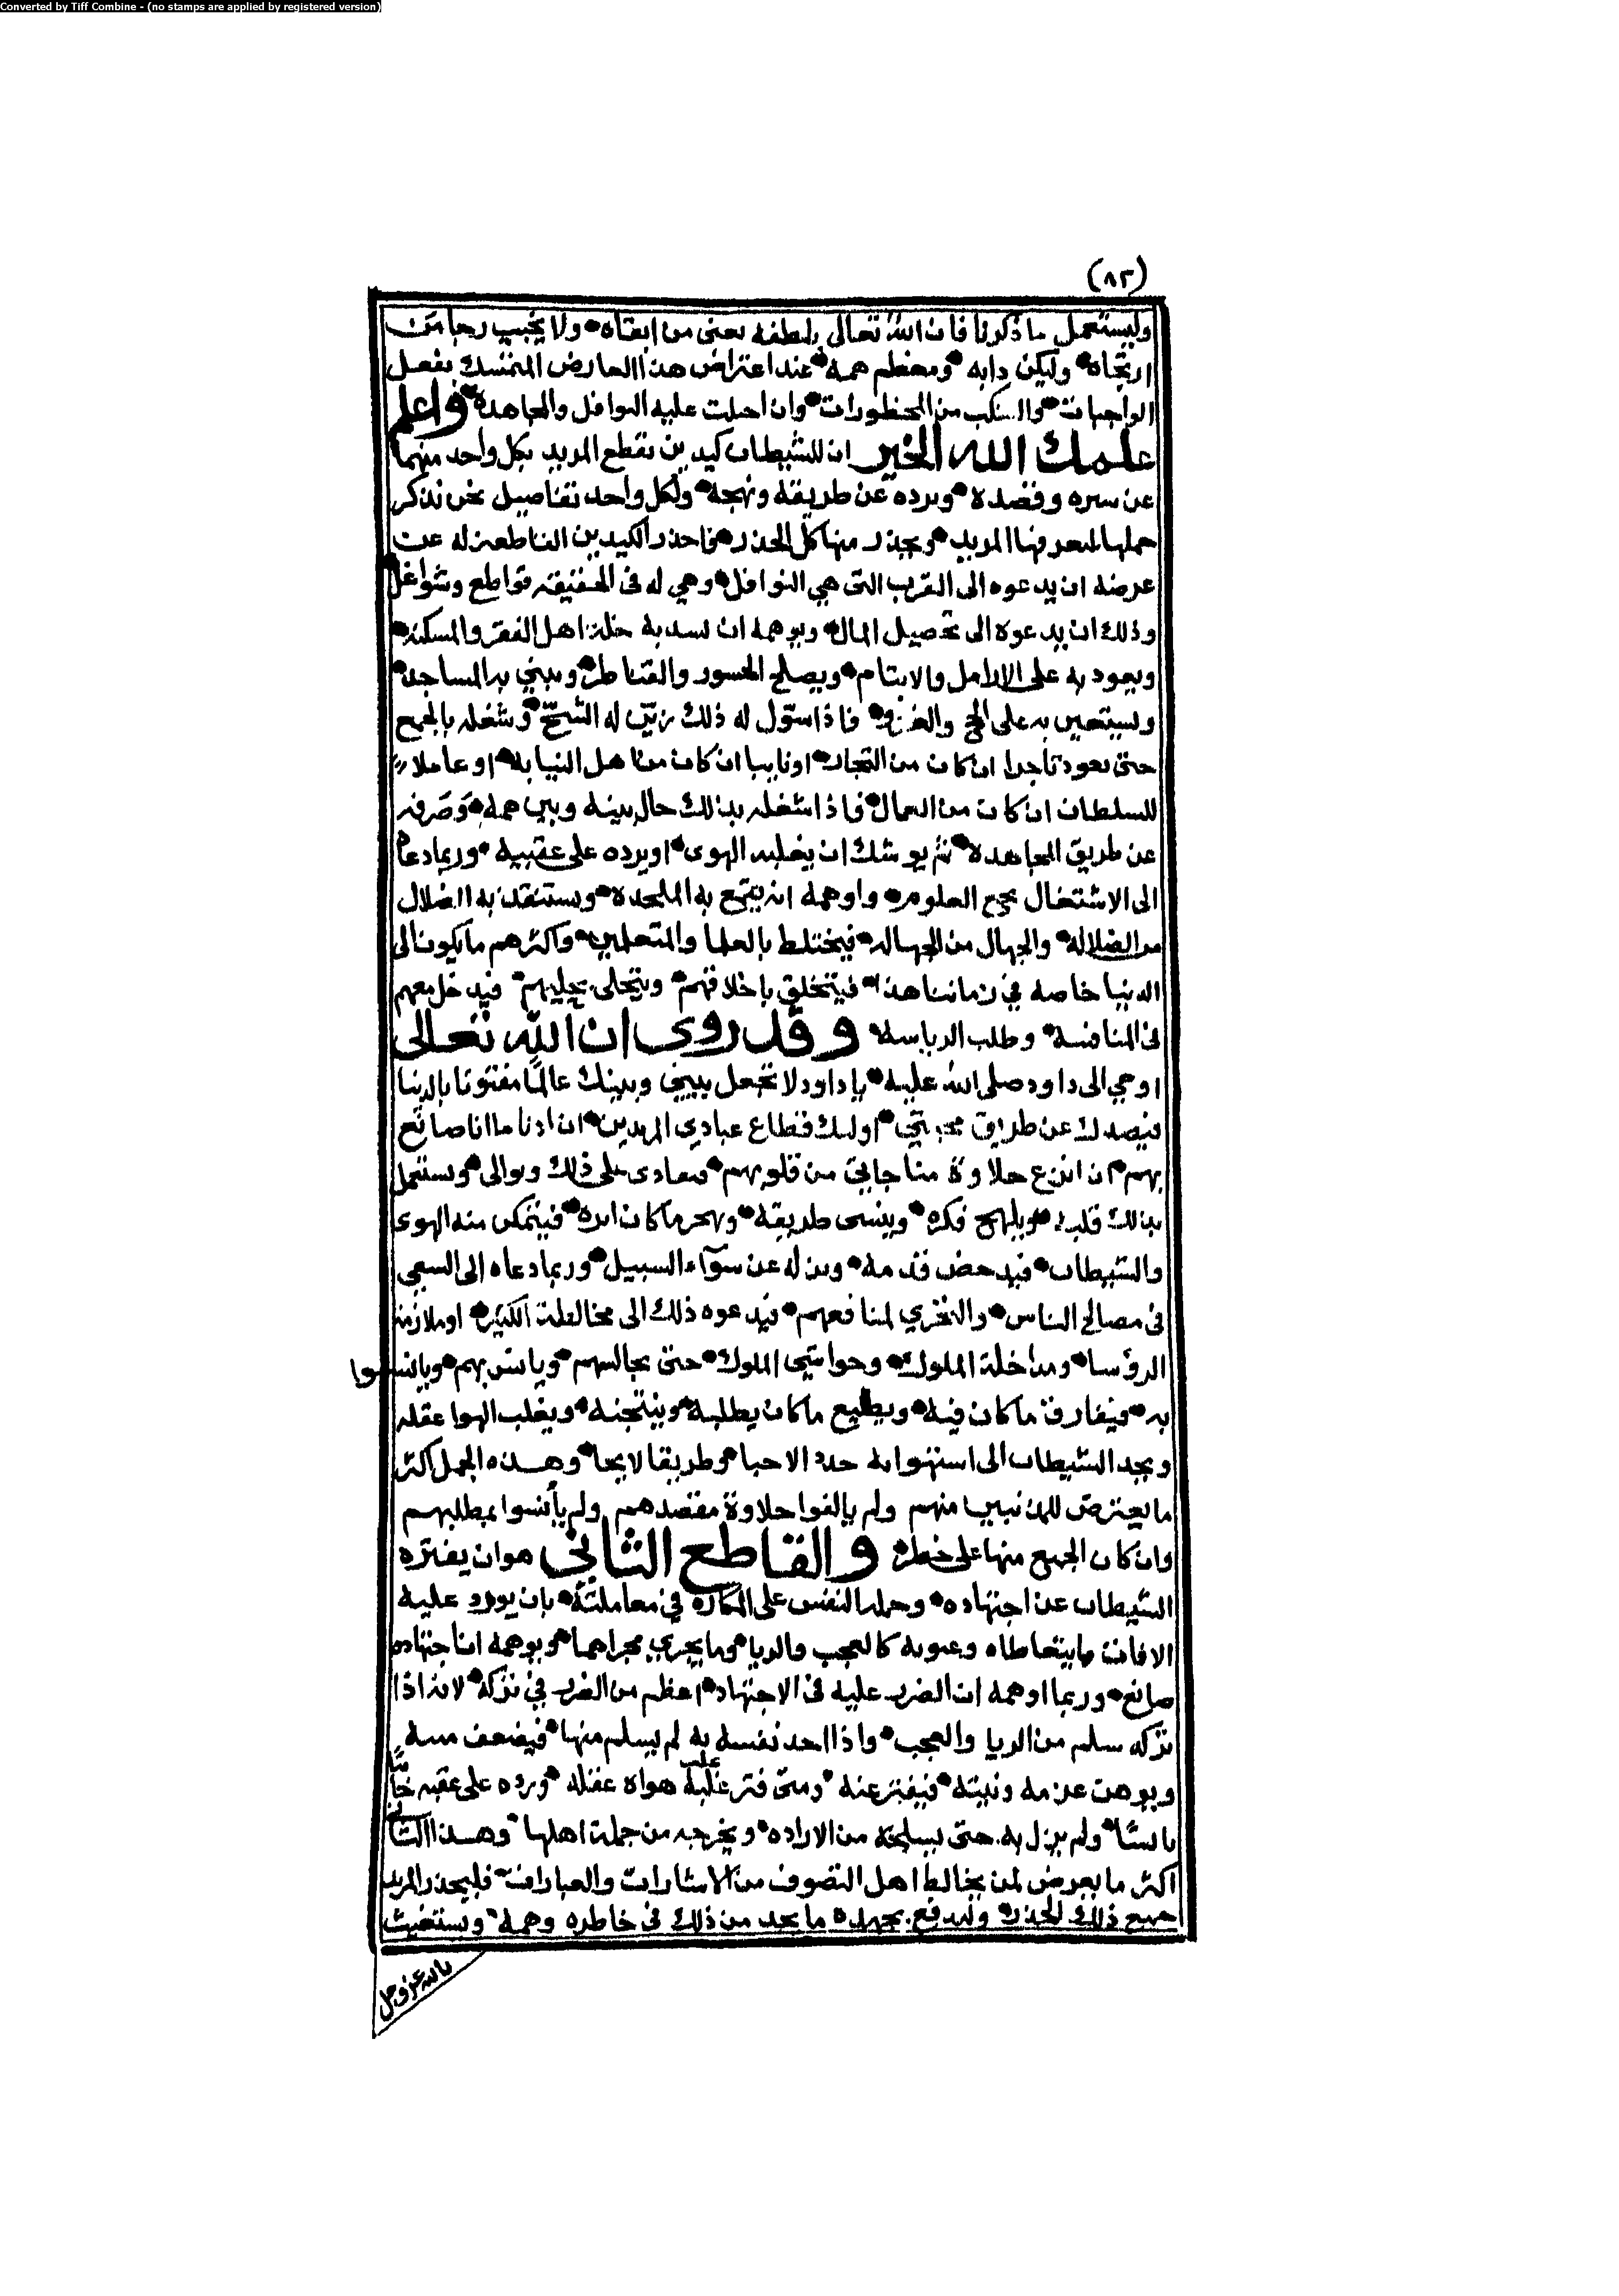 Converted by Tiff Combine - (no stamps are applied by registered version)
(٨٣)
وليستعمل ما ذكرنا فان الله تعالى بلطفه يعين من اتقاه ولا يخيب رجا من
ارتجاه وليكن دابه ومعظم همه عند اعتراض هذا العارض التمسك بفعل
الواجبات والتنكب من المحظورات وان اخلت عليه النوافل والمجاهدة واعلم
علمك الله الخير ان للشيطان كيدين يقطع المريد بكل واحد منهما
عن سيره وقصده ويرده عن طريقه ونهجه ولكل واحد تفاصيل نحن نذكر
جملها ليعرفها المريد ويحذر منها كل الحذر فاحد الكيدين القاطعين له عن
غرضه ان يدعوه الى القرب التي هي النوافل وهي له في الحقيقة قواطع وشواغل
وذلك ان يدعوه الى تحصيل المال ويوهمه ان يسد به خلة اهل الفقر والمسكنة
ويعود به على الارامل والايتام ويصلح الجسور والقناطر ويبني به المساجد
ويستعين به على الحج والغزو فاذا سول له ذلك زين له الشح وشغله بالجمع
حتى يعود تاجرا ان كان من التجار او نايبا ان كان من اهل النيابه او عاملا
للسلطان ان كان من العمال فاذا شغله بذلك حال بينه وبين همه وصرفه
عن طريق المجاهدة ثم يوشك ان يغلبه الهوى او يرده على عقبيه وربما دعاه
الى الاشتغال بجمع العلوم واوهمه انه يقمع به الملحدة ويستنقذ به الضلال
من الضلاله والجهال من الجهاله فيختلط بالعلما والمتعلمين واكثرهم مايكون الى
الدنيا خاصه في زماننا هذا فيتخلق باخلاقهم ويتحلى بحليهم فيدخل معهم
في المنافسة وطلب الرياسة وقد روى ان الله تعالى
اوحي الى داود صلى الله عليه يا داود لا تجعل بيني وبينك عالما مفتونا بالدنيا
فيصدك عن طريق محبتي اوليك قطاع عبادي المريدين ان ادنا ما انا صانع
بهم ان انزع حلاوة مناجاتي من قلوبهم فيعادى على ذلك ويوالى ويستعمل
بذلك قلبه ويلهج فكره وينسى طريقه ويهجر ما كان اراده فيتمكن منه الهوى
والشيطان فيدحض قدمه ويزله عن سوآء السبيل وربما دعاه الى السعي
في مصالح الناس والتحري لمنافعهم فيدعوه ذلك الى مخالطة الكثير او ملازمة
الروسا ومداخلة الملوك وحواشي الملوك حتى يجالسهم ويانس بهم ويانسوا
به فيفارق ما كان فيه ويضيع ما كان يطلبه وينتجعه ويغلب الهوا عقله
ويجد الشيطان الى استهوايه وطريقا لايحا وهذه الجمل اكثر
ما يعترض للمذنبين منهم ولم يالفوا حلاوة مقصدهم ولم يأنسوا بمطلبهم
وان كان الجميع منها على خطر والقاطع الثاني هو ان يفتره
الشيطان عن اجتهاده وحمله النفس على المكاره في معاملته بان يورد عليه
الافات مايتعاطاه وعيوبه كالعجب والريا وما يجري مجراهما ويوهمه ان اجتهاده
ضايع وربما اوهمه ان الضرر عليه في الاجتهاد اعظم من الضرر في تركه لانه اذا
تركه سلم من الريا والعجب واذا اخذ نفسه به لم يسلم منها فيضعف منته
ويوهن عزمه ونيته فيفتر عنه ومتى فتر غلب هواه عقله ورده على عقبه خائبا
بائسا ولم يزل به حتى يسلخه من الاراده ويخرجه من جملة اهلها وهذا الثاني
اكثر ما يعرض لمن يخالط اهل التصوف من الاشارات والعبارات فليحذر المريد
جميع ذلك الحذر وليدفع بجهده ما يجد من ذلك في خاطره وهمه ويستغيث
بالله عز وجل